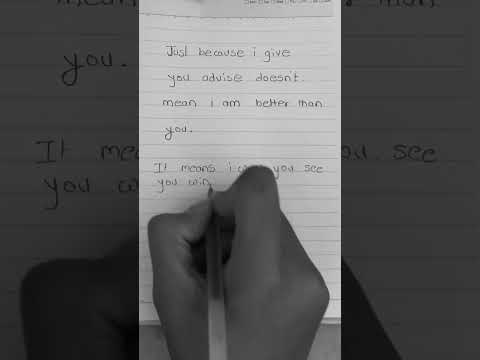 Just because i give
you advise doesn't
mean i am better than
you.
It means i you see
you win